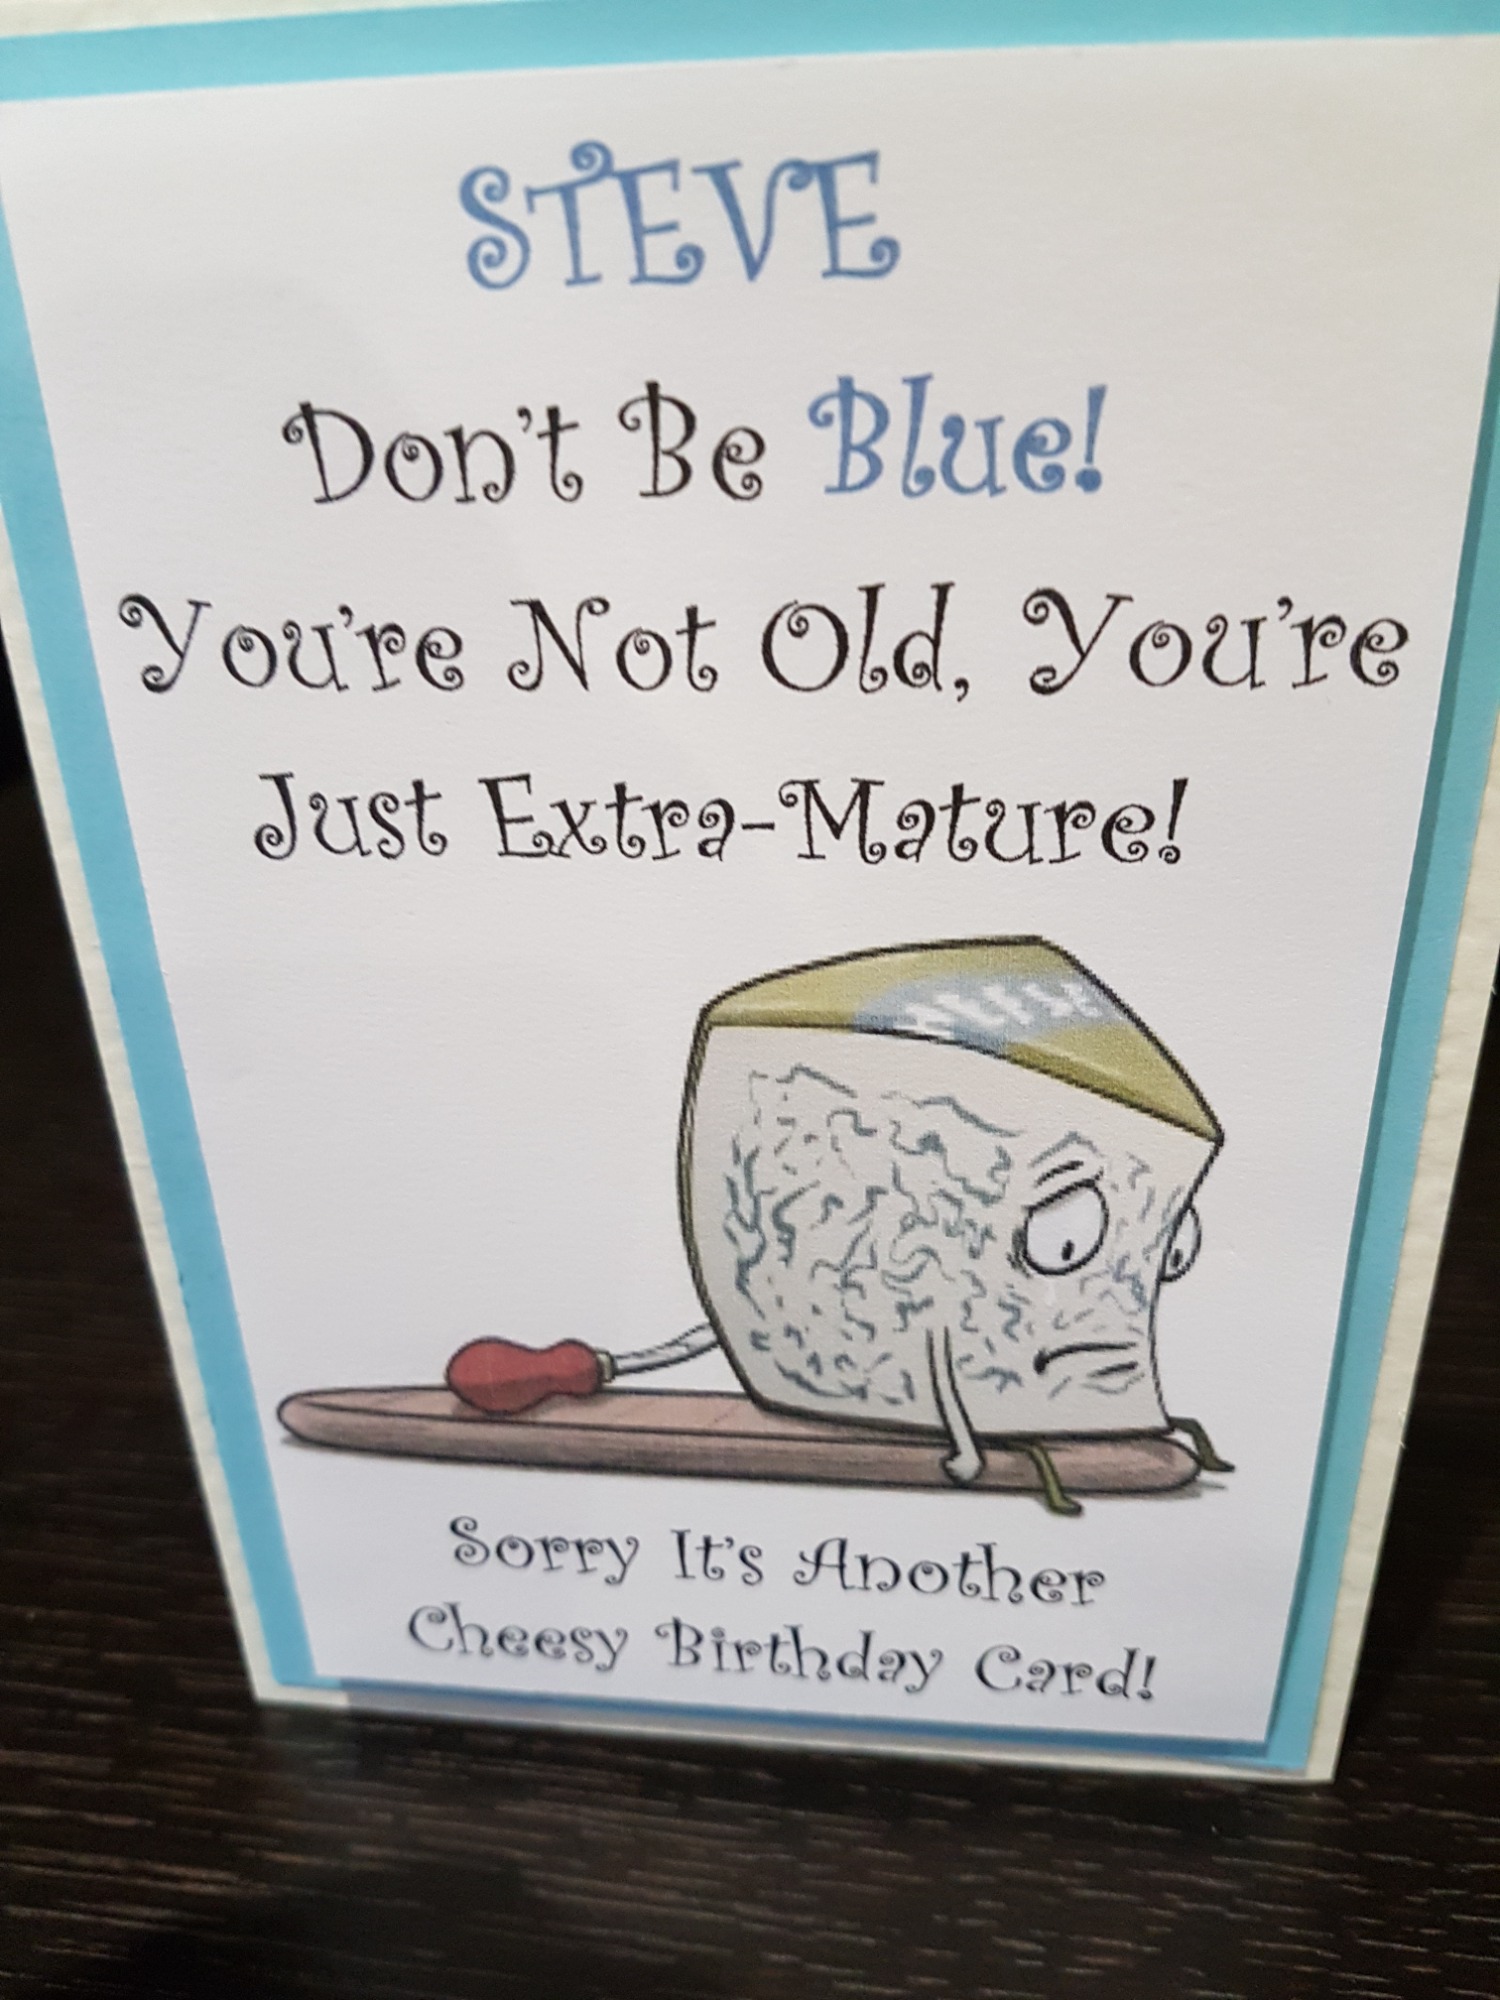 STEVE
Don't Be Blue!
You're Not Old, You're
Just Extra-Mature!
Sorry It's Another
Cheesy Birthday Card!